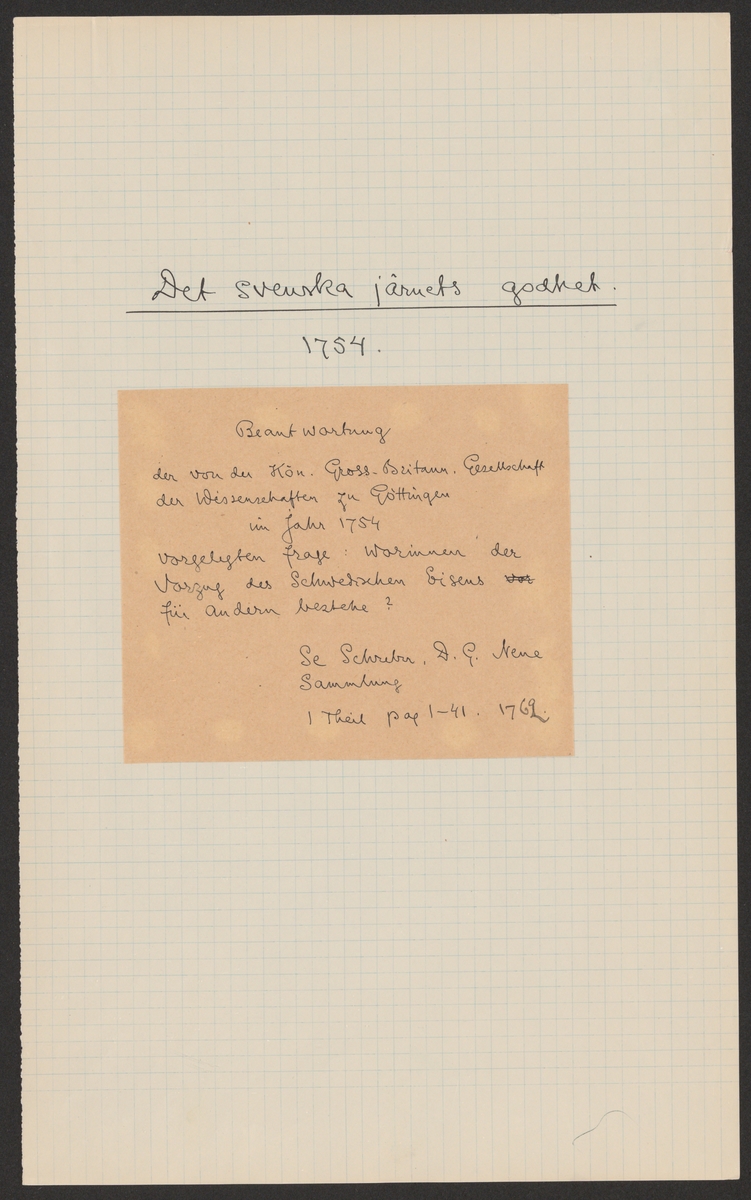 Det svenska järnets godhet.
1754.
Beantwortung
der von der Kön. Gross-Britann. Gesellschaft
der Wissenschaften zu Göttingen
im Jahr 1754
vorgelegten Frage: Worinnen der
Vorzug des Schwedischen Eisens vor
für andern bestehe?
Se Schreber, D. G. Neue
Sammlung
1 Theil pag 1-41. 1762.